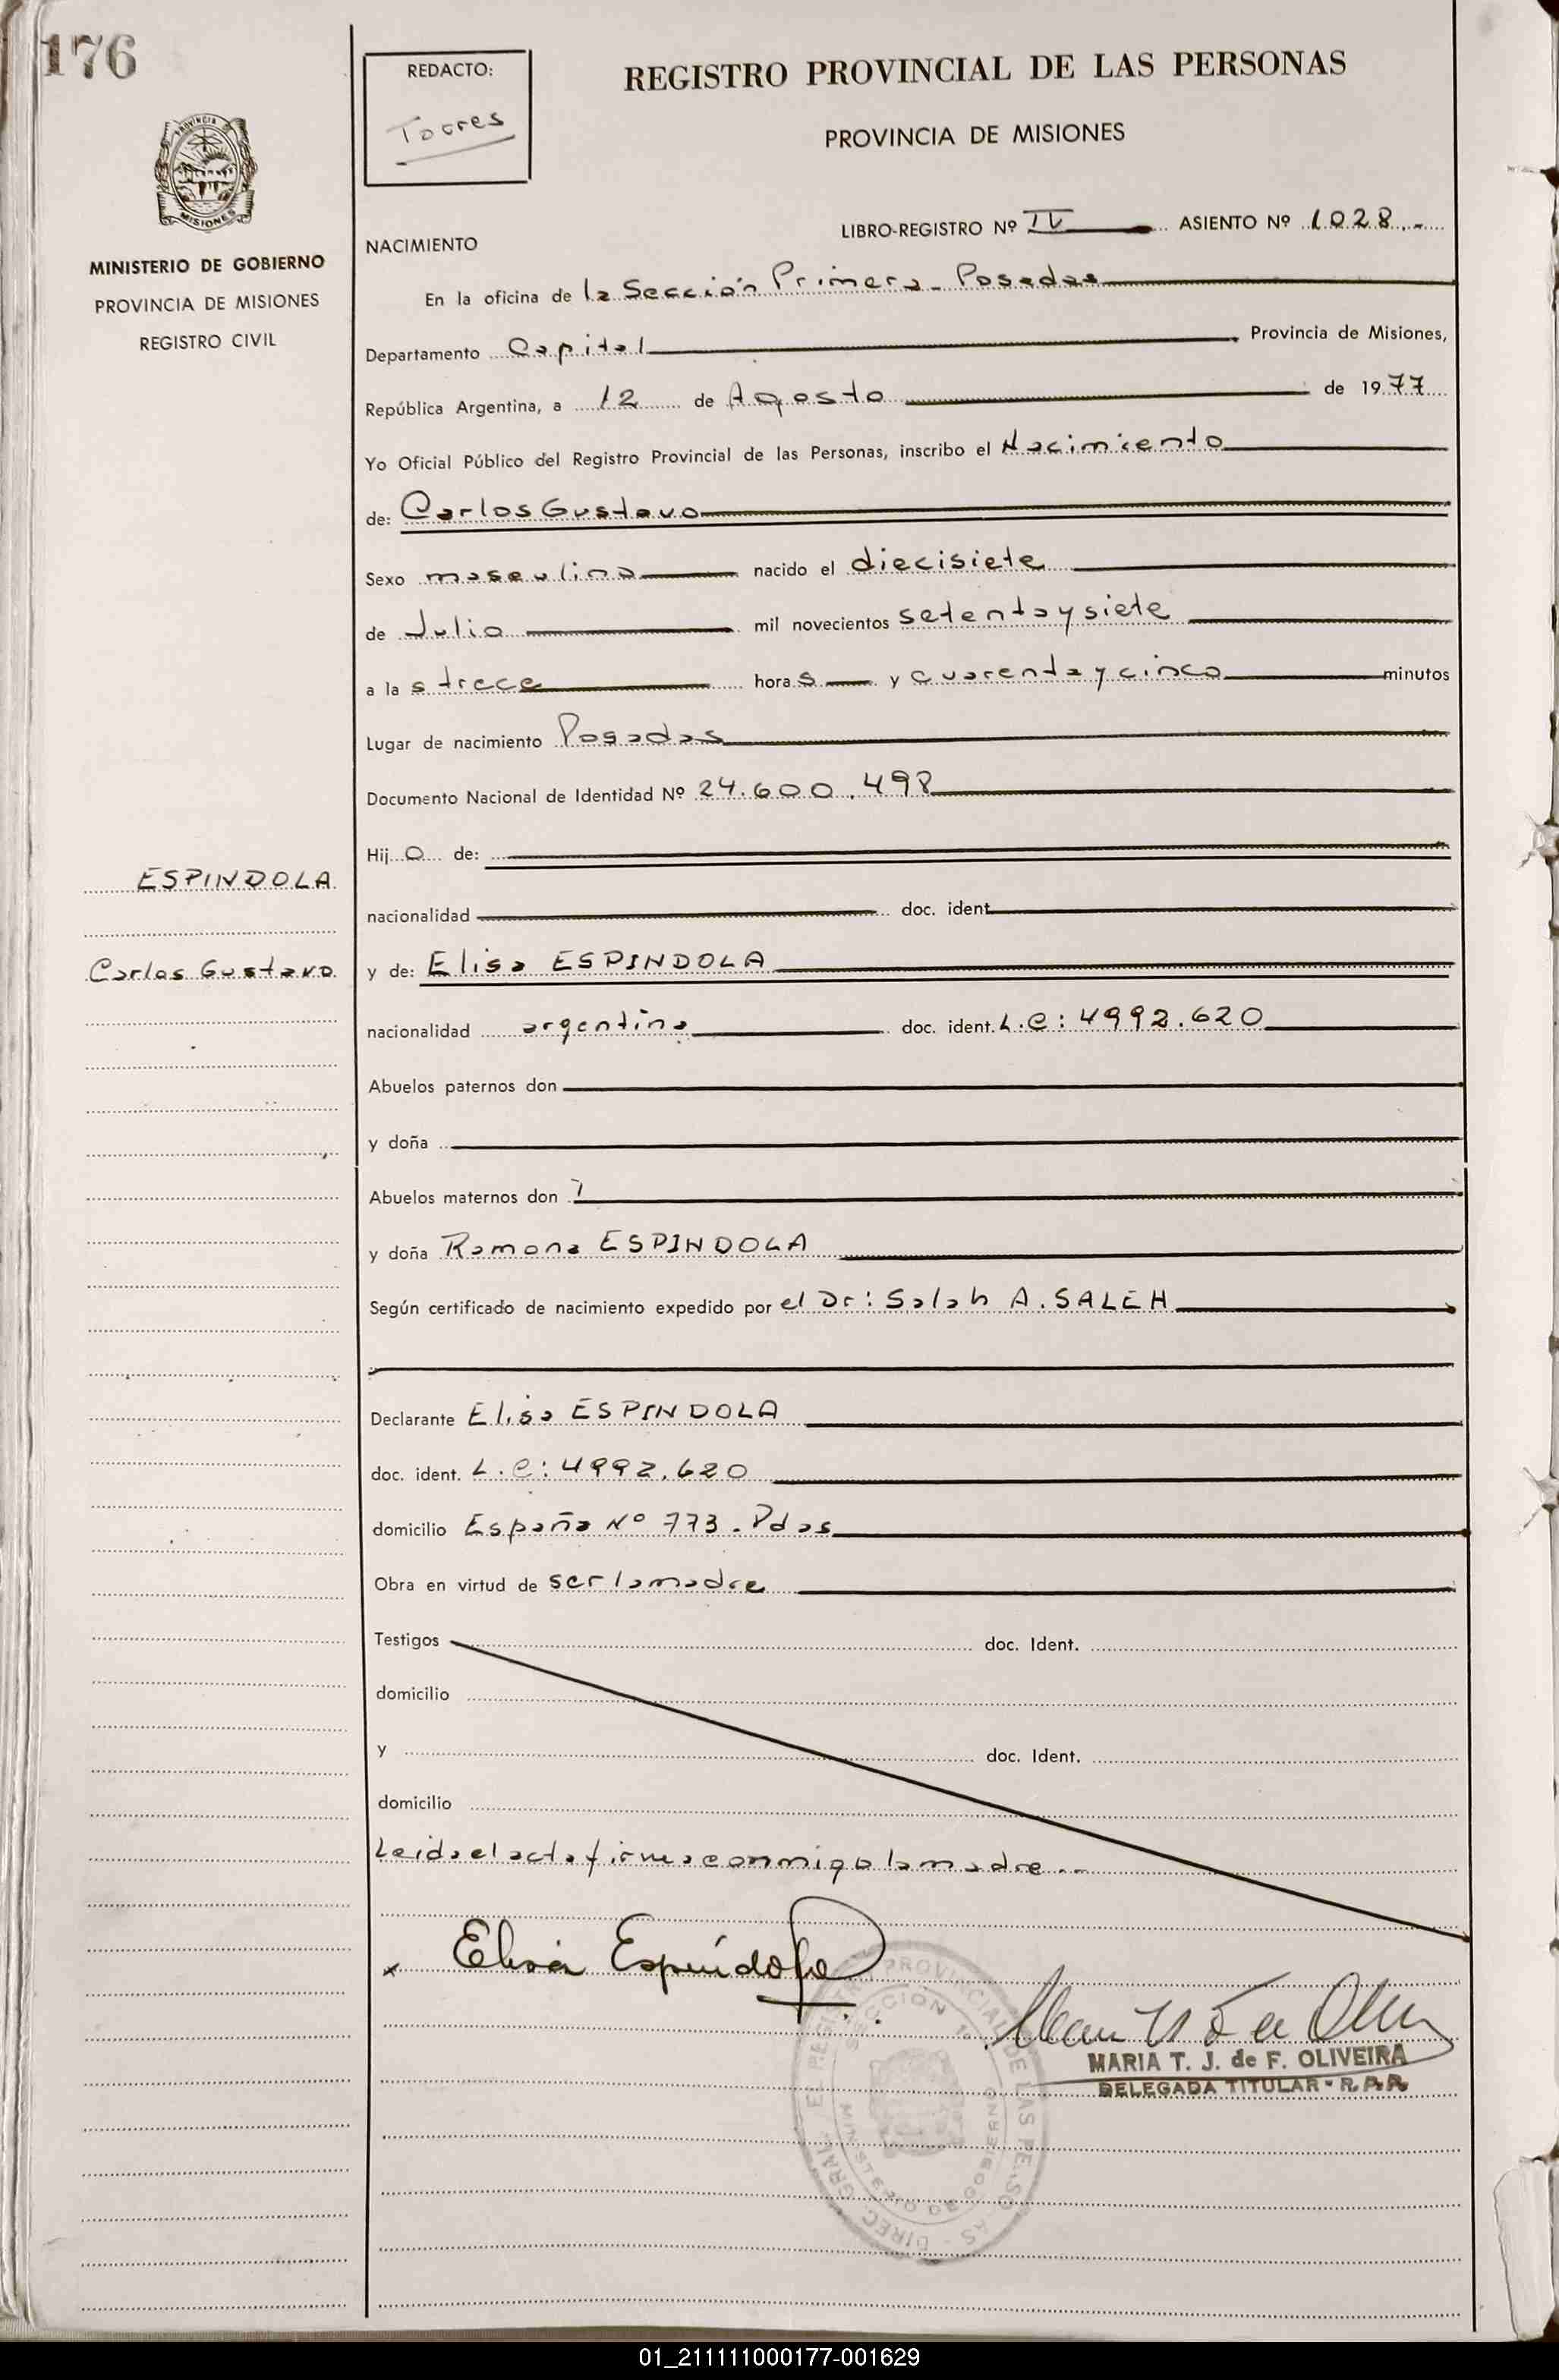 176
REDACTO:
Torres
REGISTRO PROVINCIAL DE LAS PERSONAS
PROVINCIA DE MISIONES
PROVINCIA
MISIONES
MINISTERIO DE GOBIERNO
PROVINCIA DE MISIONES
REGISTRO CIVIL
LIBRO-REGISTRO Nº IV ASIENTO Nº 1028.-
NACIMIENTO
En la oficina de la Sección Primera - Posadas
Departamento Capital Provincia de Misiones,
República Argentina, a 12 de Agosto de 1977
Yo Oficial Público del Registro Provincial de las Personas, inscribo el Nacimiento
de: Carlos Gustavo
Sexo masculino nacido el diecisiete
de Julio mil novecientos setenta y siete
a las trece horas y cuarenta y cinco minutos
Lugar de nacimiento Posadas
Documento Nacional de Identidad Nº 24.600.498
Hijo de:
ESPINDOLA
nacionalidad doc. ident.
Carlos Gustavo
y de: Elisa ESPINDOLA
nacionalidad argentina doc. ident. L.C: 4992.620
Abuelos paternos don
y doña
Abuelos maternos don
y doña Ramona ESPINDOLA
Según certificado de nacimiento expedido por el Dr: Salah A. SALEH
Declarante Elisa ESPINDOLA
doc. ident. L.C: 4992.620
domicilio España Nº 773. Pdas
Obra en virtud de ser la madre
Testigos doc. Ident.
domicilio
y doc. Ident.
domicilio
Leida el acta firma conmigo la madre..-
x Elisa Espíndola
MARIA T. J. de F. OLIVEIRA
DELEGADA TITULAR - R.P.P.
SECCION 1ª
MINISTERIO DE GOBIERNO
01_211111000177-001629